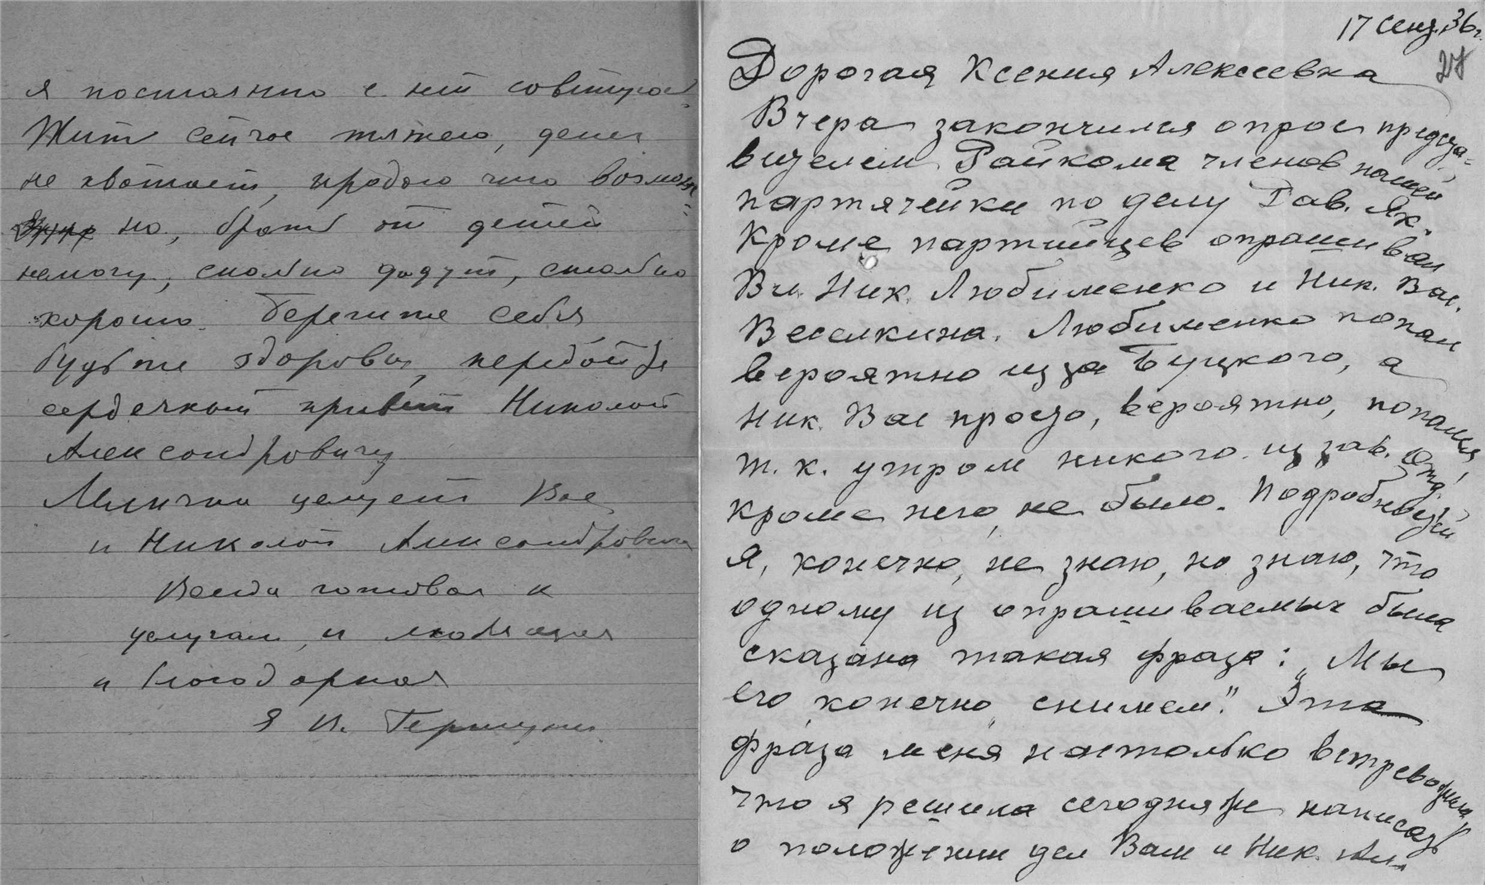 я постоянно с ней советуюсь.
Жить сейчас тяжело, денег
не хватает, продаю что возмож=
но, брать от детей
немогу, сколько дадут, столько
хорошо. Берегите себя
будьте здоровы, передайте
сердечный привет Николаю
Александровичу
целует Вас
и Николая Александровича
Всегда готовая к
услугам, и любящая
и благодарная
Я И.
17 сент. 36 г.
27
Дорогая Ксения Алексеевна
Вчера закончился опрос предста=
вителем Райкома членов нашей
партячейки по делу Гав. Як.
Кроме партийцев опрашивал
Вл. Ник. Любименко и Ник. Вас.
Веселкина. Любименко попал
вероятно из за Буцкого, а
Ник. Вас просто, вероятно, попался,
т. к. утром никого из зав. отд.
кроме него, не было. Подробностей
я, конечно, не знаю, но знаю, что
одному из опрашиваемых была
сказана такая фраза: „Мы
его, конечно, снимем". Эта
фраза меня настолько встревожила,
что я решила сегодня же написать
о положении дел Вам и Ник. Ал.